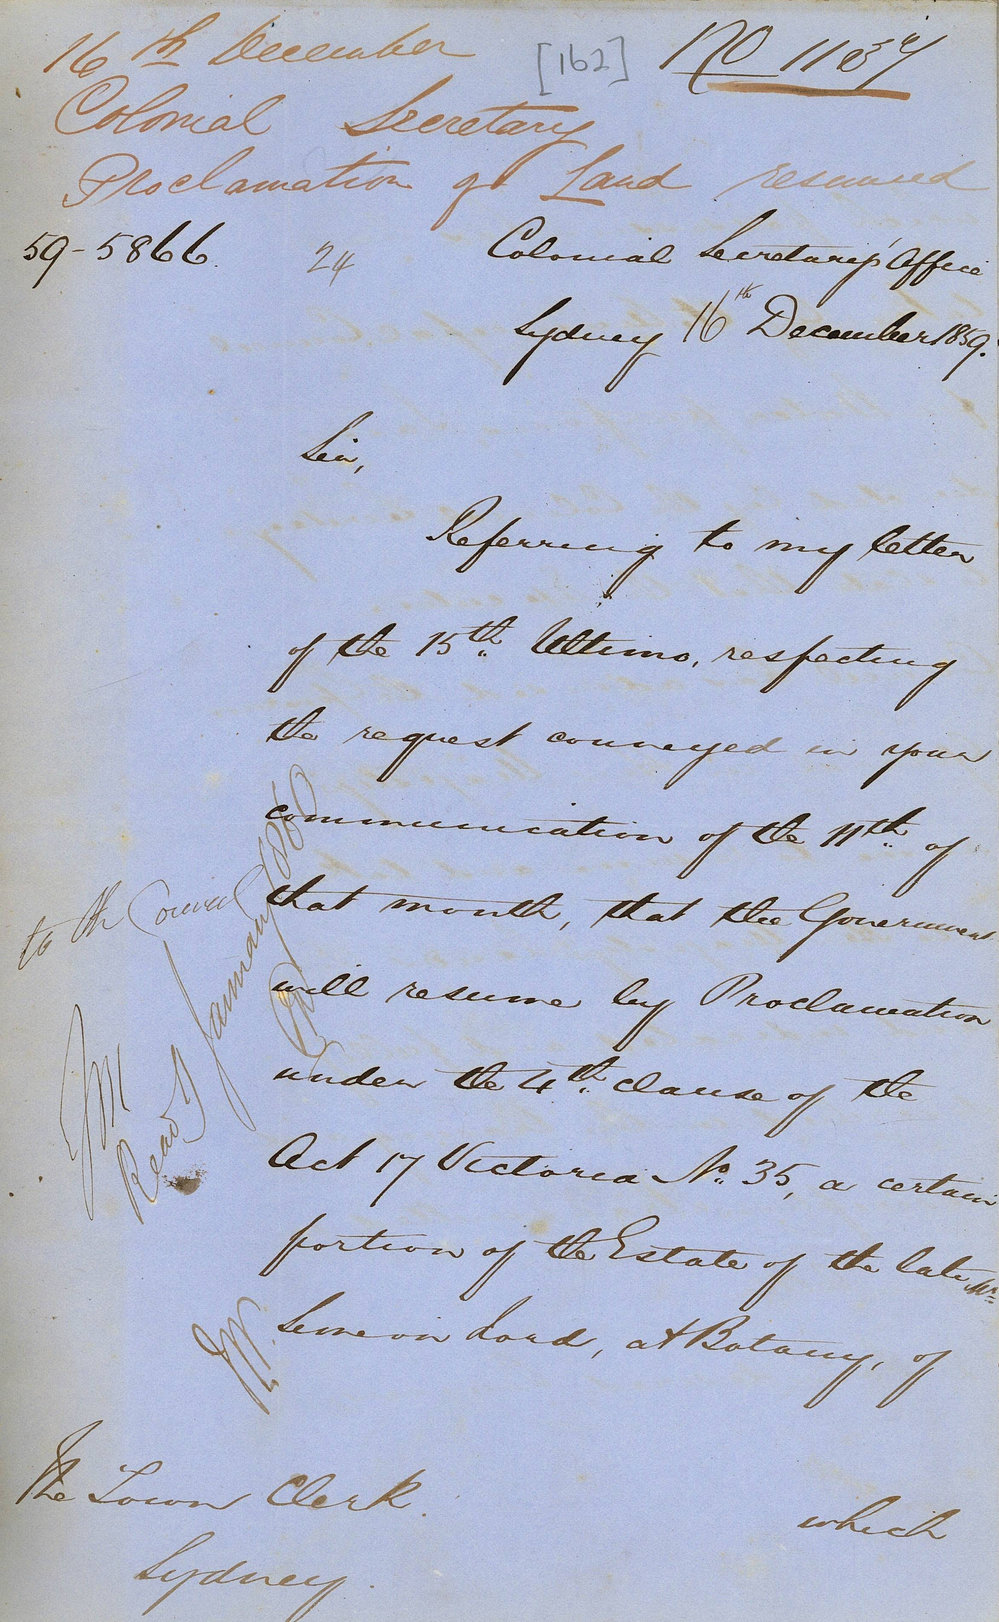 16th December
[162]
No 1137
Colonial Secretary
Proclamation of Land resumed
59-5866.
24
Colonial Secretary's Office
Sydney 16th December 1859.
Sir,
Referring to my letter
of the 15th. Ultimo, respecting
the request conveyed in your
communication of the 11th. of
that month, that the Government
will resume by Proclamation
under the 4th. clause of the
Act 17 Victoria No. 35, a certain
portion of the Estate of the late Mr
Simeon Lord, at Botany, of
to the Council
Read 9 January 1860
The Town Clerk.
Sydney.
which